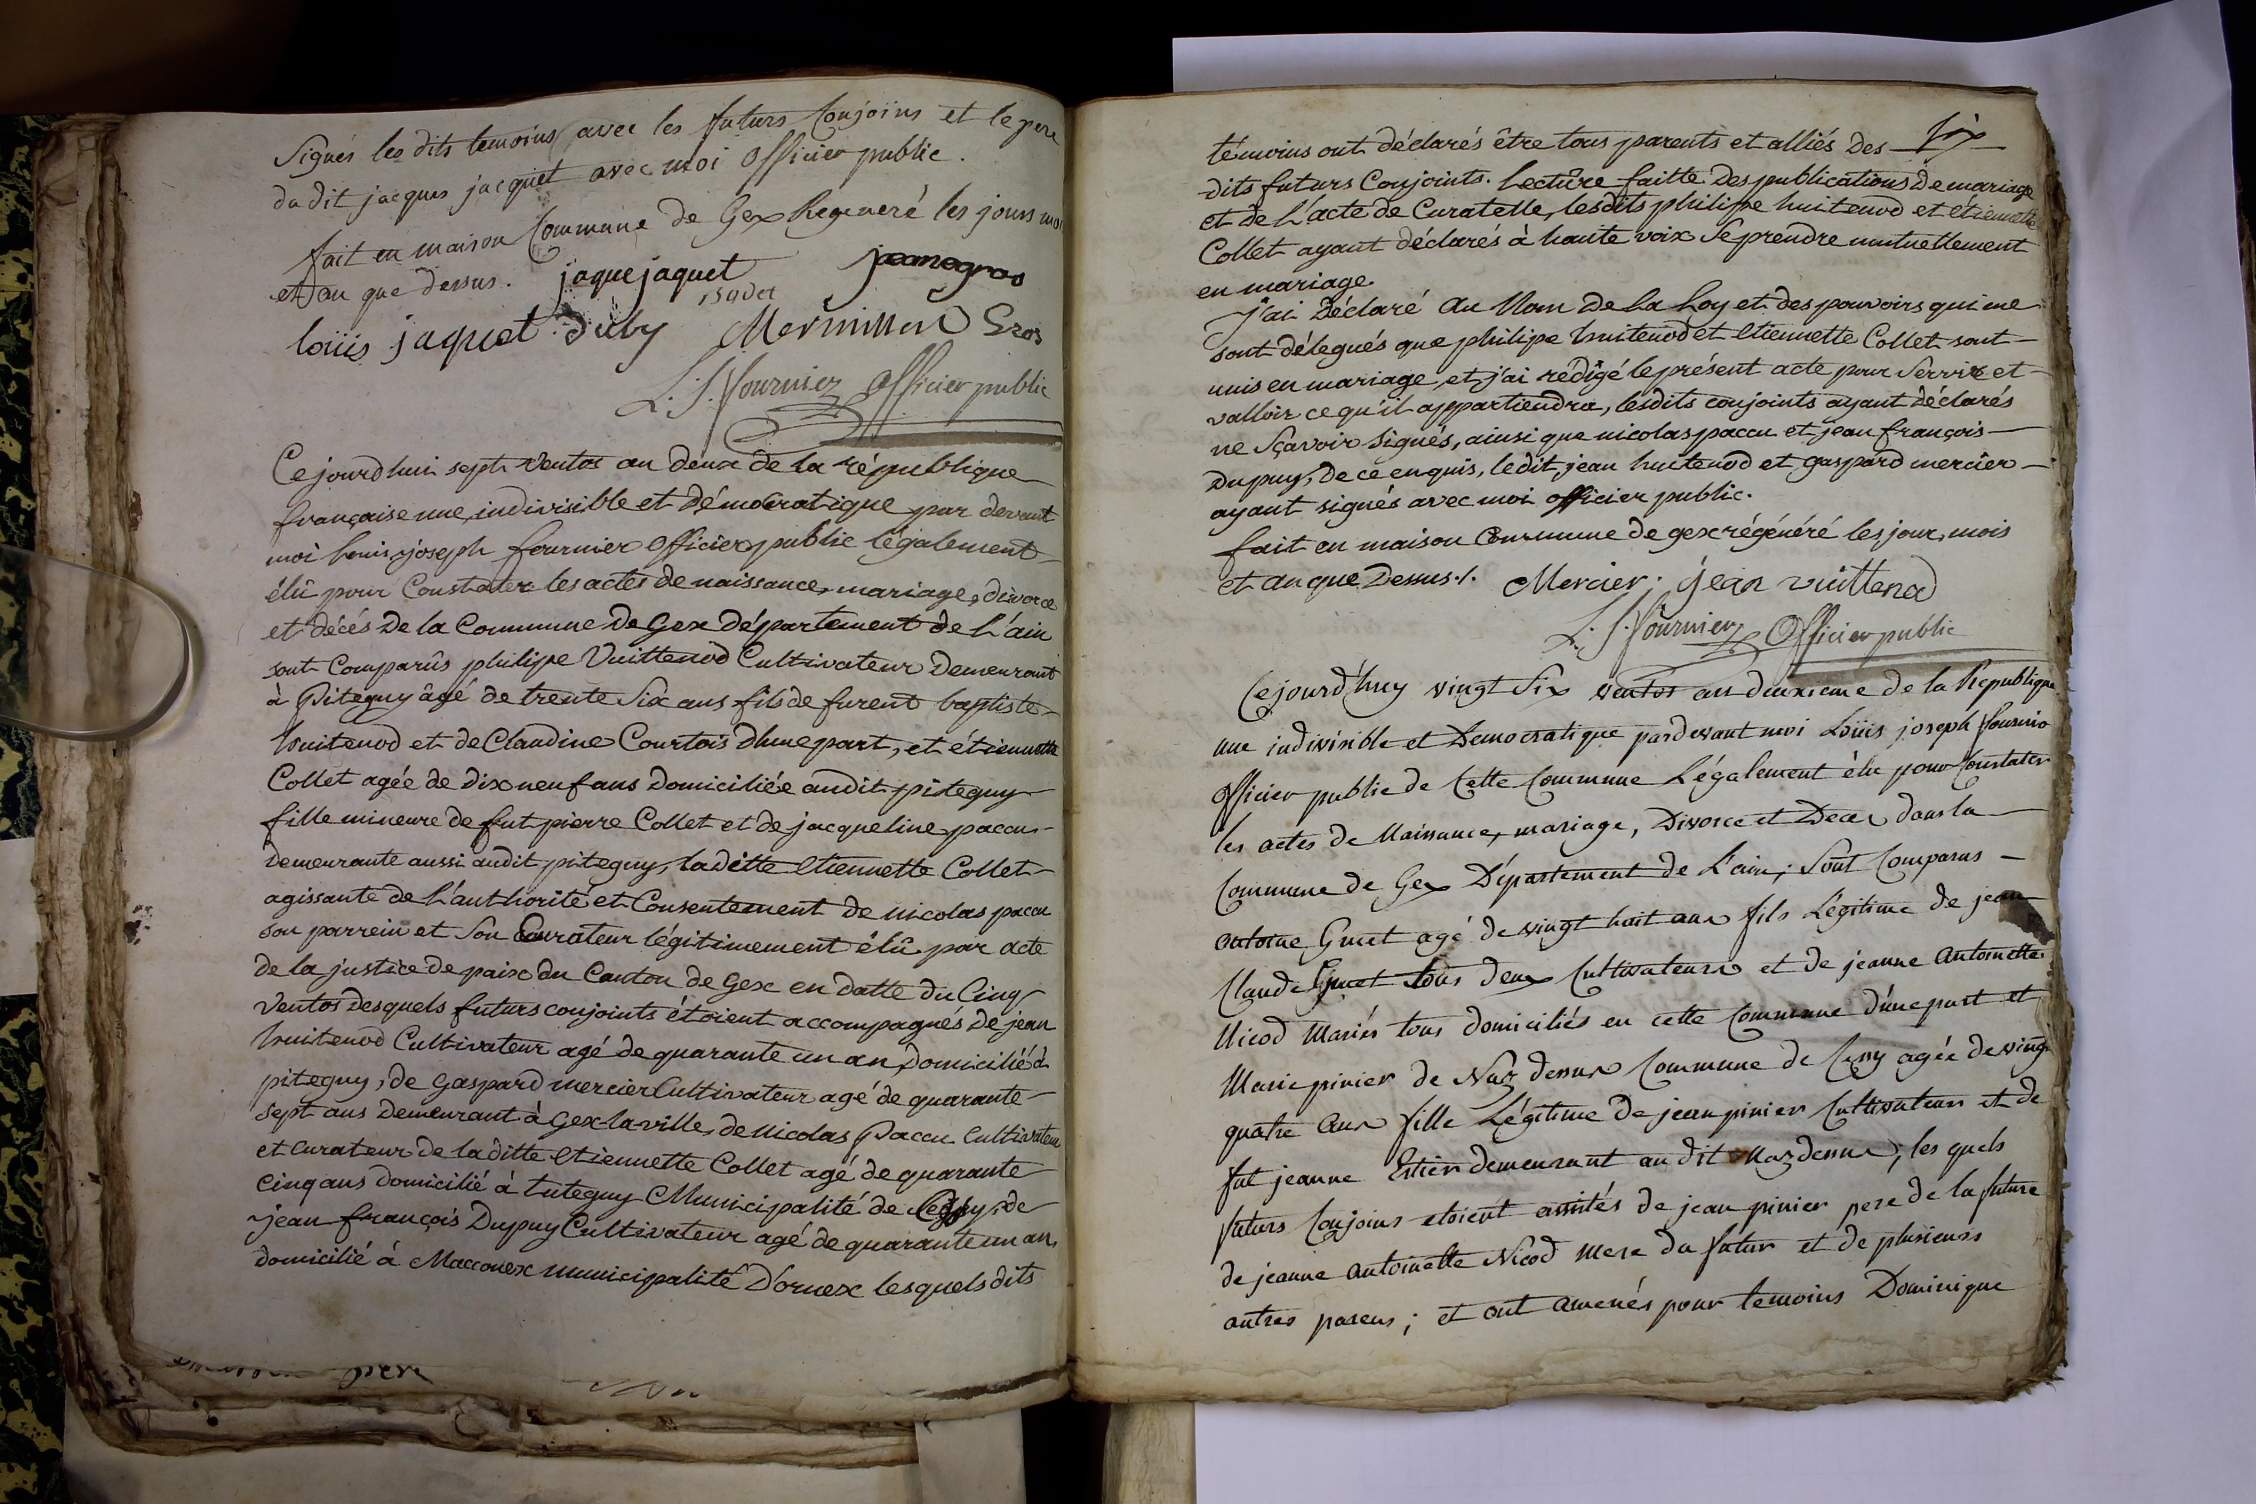 Signés les dits temoins avec les futurs Conjoins et le pere
du dit jacques jacquet avec moi Officier public.
fait en maison Commune de Gex Regeneré les jours moi
et an que dessus. jaque jaquet jeanegros
loüis jaquet duby Mermillon Gros
L. J. fournier Officier public
Ce jourd'hui sept ventos an deux de la république
française une, indivisible et démocratique par devant
moi louis joseph fournier officier public légalement
élû pour Constater les actes de naissance, mariage, divorce
et décés De la Commune De Gex Département de L'ain
sont Comparûs philipe Vuittenod Cultivateur Demeurant
à Piteguy âgé de trente Six ans fils de furent baptiste
huitenod et de Claudine Courtois d'hune part, et étiennette
Collet agée de dix neuf ans Domiciliée audit piteguy
fille mineure de fut pierre Collet et de jacqueline paccu
Demeurante aussi audit piteguy, ladite Etiennette Collet
agissante de L'authorité et Consentement de nicolas paccu
son parrein et Son Curateur légitimement élû par acte
de la justice de paix du Canton de Gex en datte du Cinq
Ventos desquels futurs conjoints étoient accompagnés De jean
huitenod Cultivateur agé de quarante un an Domicilié à
piteguy, de Gaspard mercier Cultivateur agé de quarante
sept ans Demeurant à Gex la ville, de nicolas Paccu Cultivateur
et Curateur de la ditte Etiennette Collet agé de quarante
Cinq ans domicilié à tuteguy Municipalité de Cessy, de
jean françois Dupuy Cultivateur agé de quarante un an,
domicilié à Macconex municipalité D'ornex lesquels dits
Six
témoins ont déclarés être tous parents et alliés Des
dits futurs Conjoints. Lectûre faitte Des publications De mariage
et de L'acte de Curatelle, lesdits philipe huitenod et étiennette
Collet ayant déclarés à haute voix Se prendre mutuellement
en mariage.
J'ai Déclaré au Nom De la Loy et des pouvoirs qui me
sont délegués que philipe huitenod et Etiennette Collet sont
unis en mariage et j'ai rédigé le présent acte pour Servir et
valloir ce qu'il appartiendra, lesdits conjoints ayant déclarés
ne Sçavoir Signés, ainsi que nicolas paccu et jean françois
Dupuy, De ce enquis, ledit jean huitenod et gaspard mercier
ayant signés avec moi officier public.
fait en maison Commune de gex régénéré les jour, mois
et an que Dessus./. Mercier. jean vuittenod
L. J. fournier Officier public
Cejourd'huy vingt Six ventos an deuxieme de la République
une indivisible et Democratique pardevant moi Loüis joseph fournier
Officier public de Cette Commune Légalement élu pour Constater
les actes de Naissance, mariage, Divorce et Decez dans la
Commune de Gex Département de L'ain; Sont Comparus
antoine Gruet agé de vingt huit ans fils Légitime de jean
Claude Gruet tous deux Cultivateurs et de jeanne Antoinette
Nicod Mariés tous domiciliés en cette Commune d'une part et
Marie pinier de Naz dessus Commune de Cessy agée de vingt
quatre ans fille Légitime de jean pinier Cultivateur et de
fut jeanne Estier demeurant au dit Naz dessus, les quels
futurs Conjoins etoient assistés de jean pinier pere de la future
de jeanne antoinette Nicod mere du futur et de plusieurs
autres parens; et ont amenés pour temoins Dominique